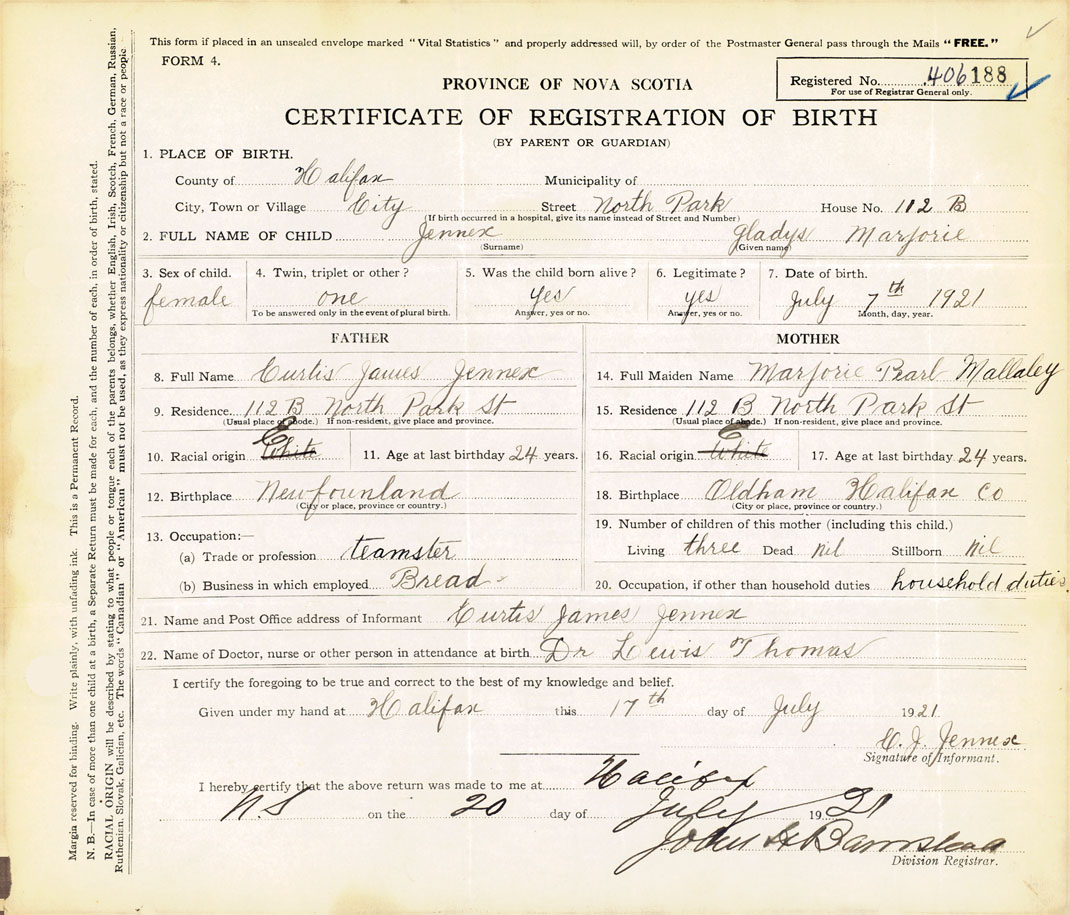 This form if placed in an unsealed envelope marked "Vital Statistics" and properly addressed will, by order of the Postmaster General pass through the Mails "FREE."
FORM 4.
PROVINCE OF NOVA SCOTIA
Registered No. 406188
For use of Registrar General only.
CERTIFICATE OF REGISTRATION OF BIRTH
(BY PARENT OR GUARDIAN)
1. PLACE OF BIRTH.
County of Halifax Municipality of
City, Town or Village City Street North Park House No. 112 B
(If birth occurred in a hospital, give its name instead of Street and Number)
2. FULL NAME OF CHILD Jennex Gladys Marjorie
(Surname) (Given name)
3. Sex of child. 4. Twin, triplet or other? 5. Was the child born alive? 6. Legitimate? 7. Date of birth.
female one yes yes July 7th 1921
To be answered only in the event of plural birth. Answer, yes or no. Answer, yes or no. Month, day, year.
FATHER
8. Full Name Curtis James Jennex
9. Residence 112 B North Park St
(Usual place of abode.) If non-resident, give place and province.
E
10. Racial origin White 11. Age at last birthday 24 years.
12. Birthplace Newfounland
(City or place, province or country.)
13. Occupation:—
(a) Trade or profession teamster
(b) Business in which employed Bread
MOTHER
14. Full Maiden Name Marjorie Pearl Mallaley
15. Residence 112 B North Park St
(Usual place of abode.) If non-resident, give place and province.
E
16. Racial origin White 17. Age at last birthday 24 years.
18. Birthplace Oldham Halifax Co
(City or place, province or country.)
19. Number of children of this mother (including this child.)
Living three Dead nil Stillborn nil
20. Occupation, if other than household duties household duties
21. Name and Post Office address of Informant Curtis James Jennex
22. Name of Doctor, nurse or other person in attendance at birth Dr Lewis Thomas
I certify the foregoing to be true and correct to the best of my knowledge and belief.
Given under my hand at Halifax this 17th day of July 1921.
C. J. Jennex
Signature of Informant.
I hereby certify that the above return was made to me at Halifax
N.S on the 20 day of July 1921
John H Barnstead
Division Registrar.
Margia reserved for binding. Write plainly, with unfading ink. This is a Permanent Record.
N. B.—In case of more than one child at a birth, a Separate Return must be made for each, and the number of each, in order of birth, stated.
RACIAL ORIGIN will be described by stating to what people or tongue each of the parents belongs, whether English, Irish, Scotch, French, German, Russian,
Ruthenian, Slovak, Galician, etc. The words "Canadian" or "American" must not be used, as they express nationality or citizenship but not a race or people